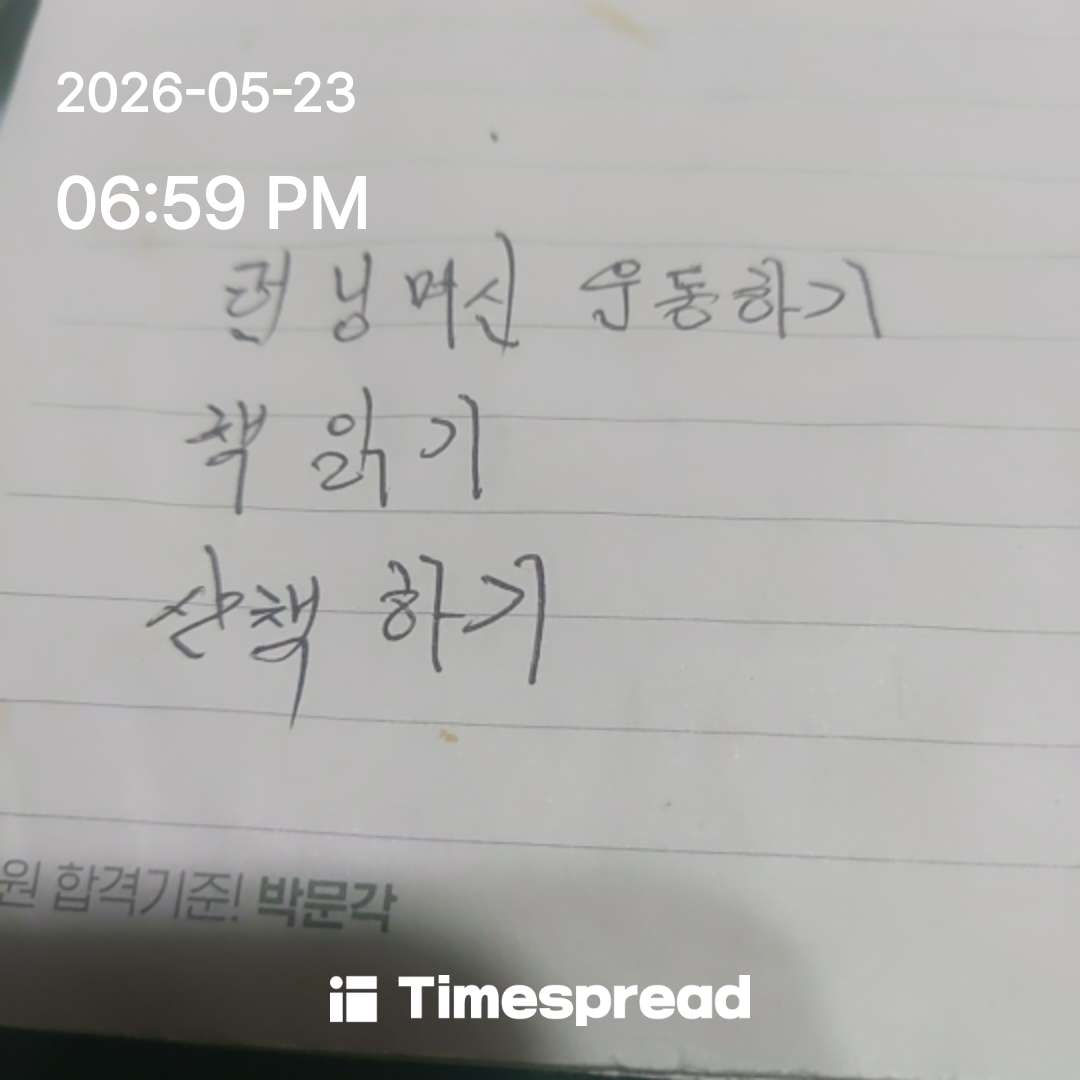 2026-05-23
06:59 PM
런닝머신 운동하기
책 읽기
산책 하기
원 합격기준! 박문각
Timespread